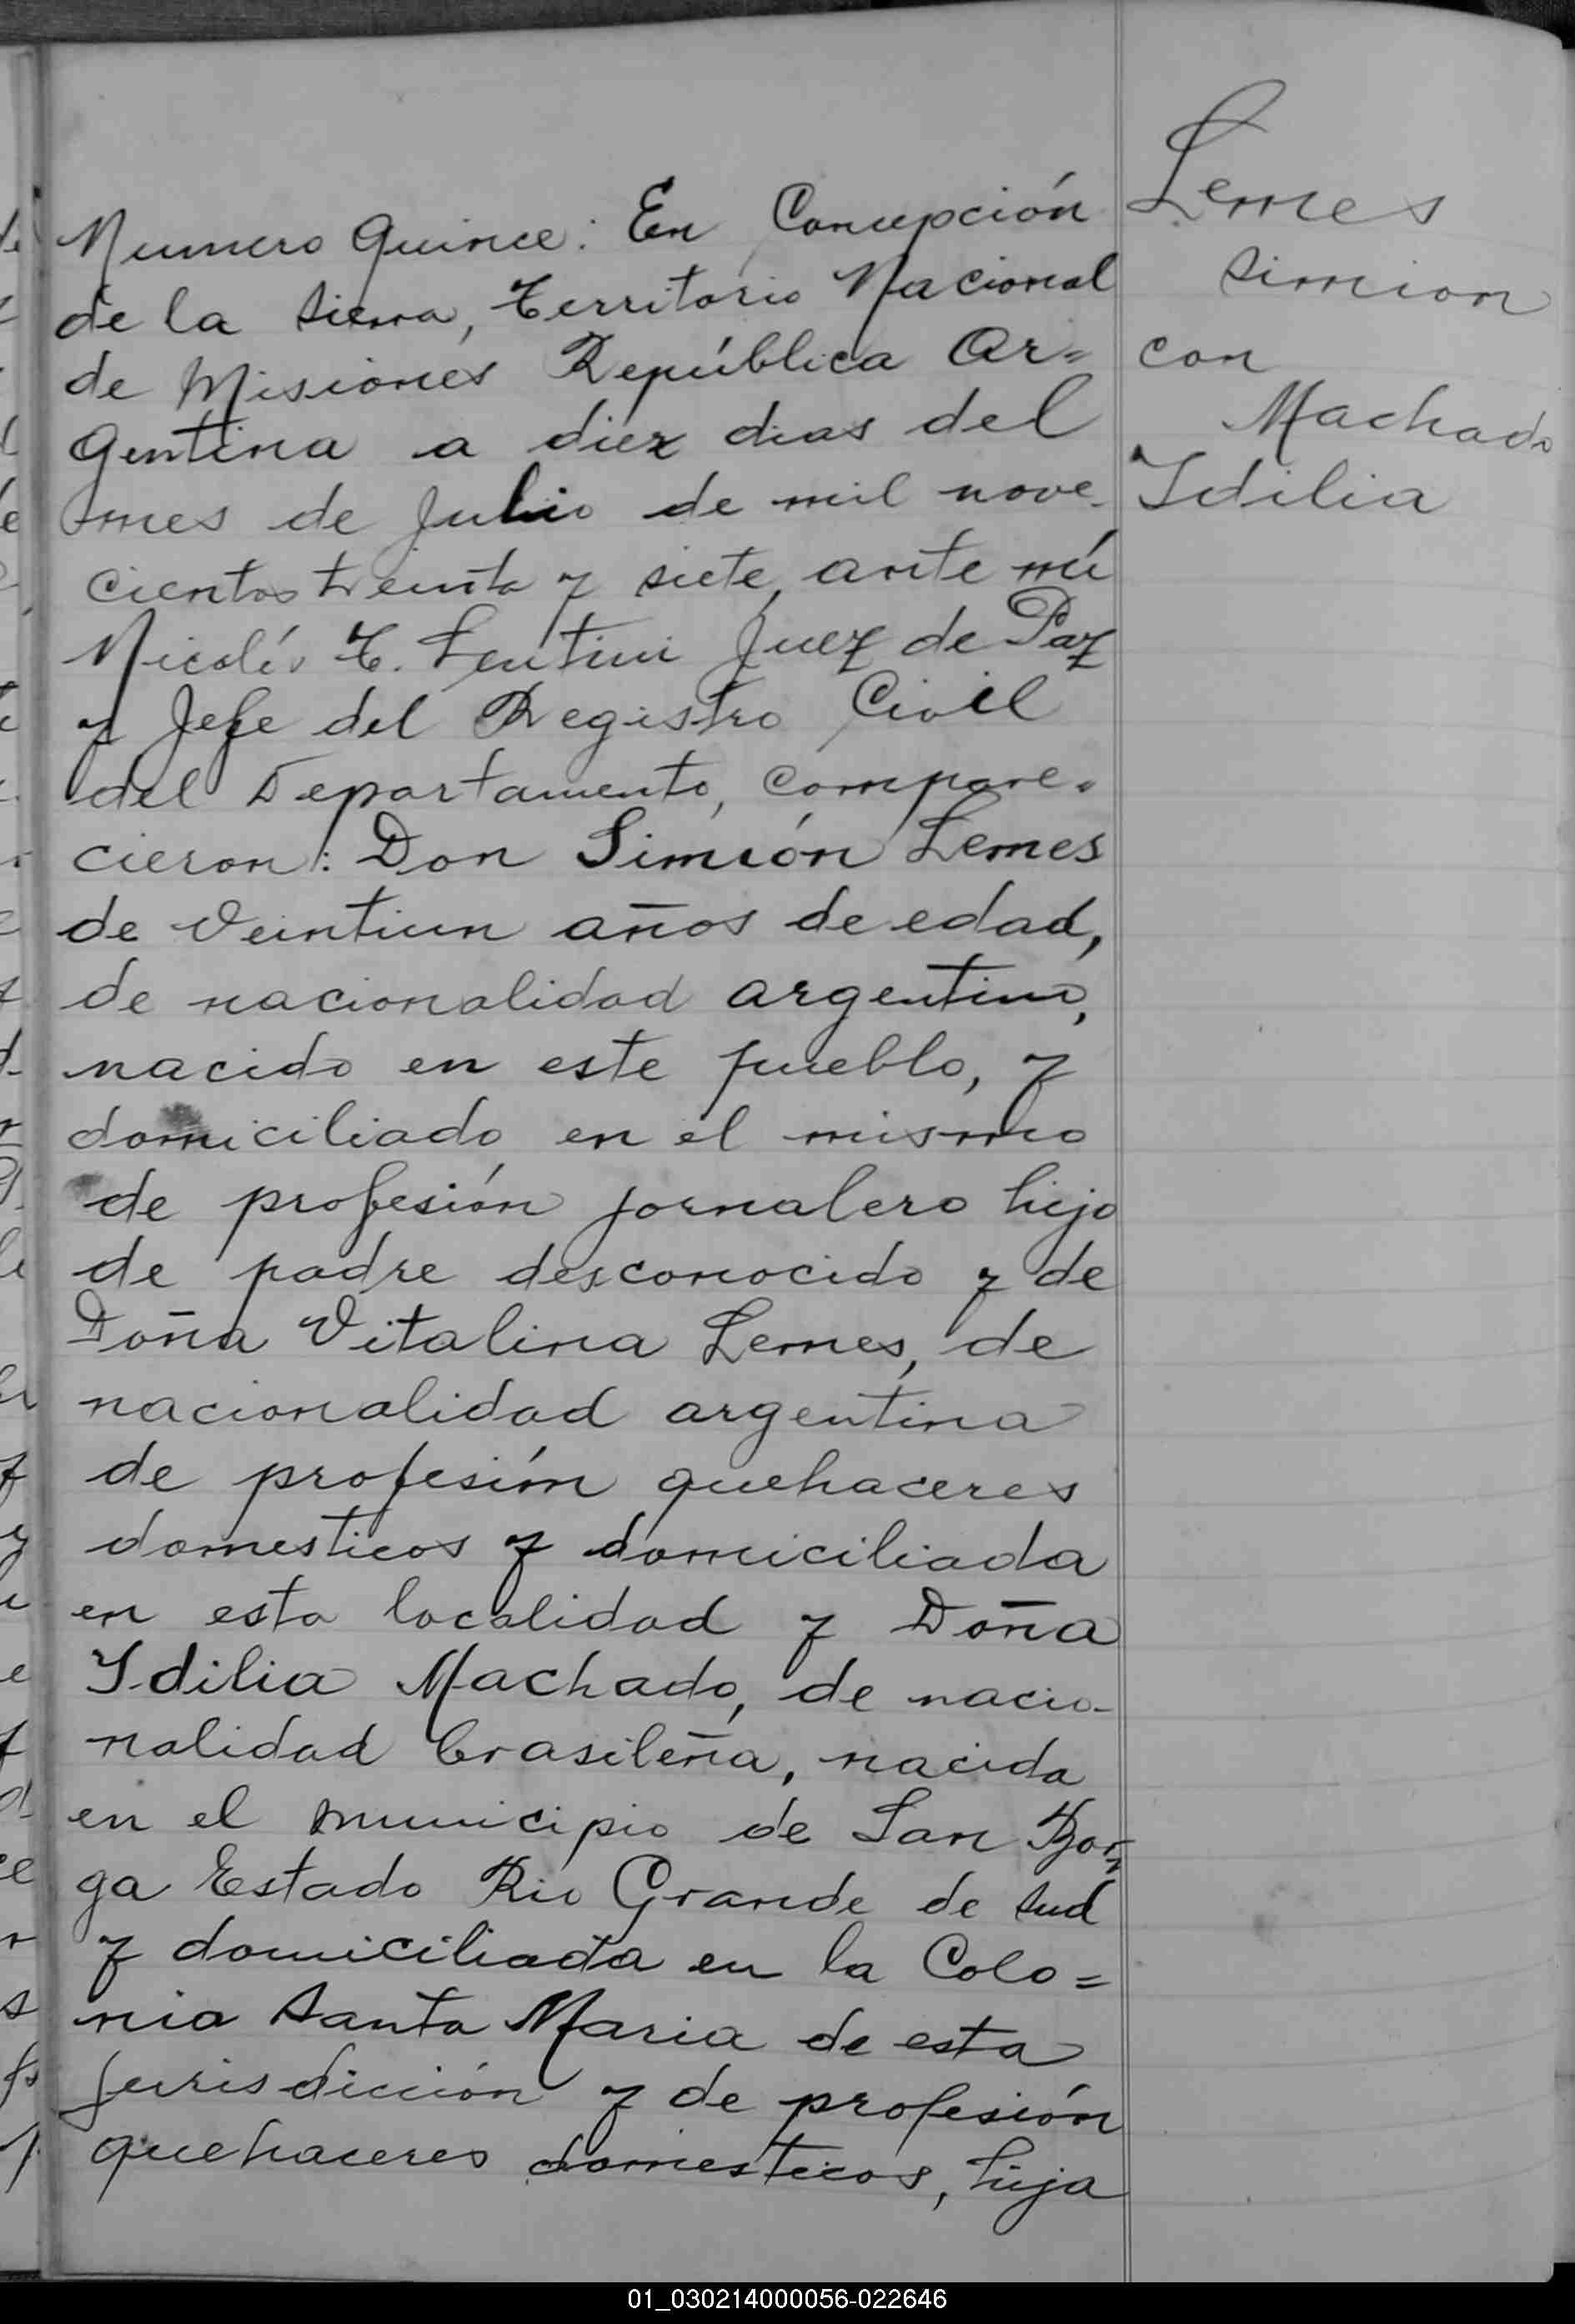 Numero Quince: En Concepción
de la Sierra, Territorio Nacional
de Misiones República Ar=
gentina a diez dias del
mes de Julio de mil nove-
cientos treinta y siete, ante mí
Nicolás T. Lentini Juez de Paz
y Jefe del Registro Civil
del Departamento, compare=
cieron: Don Simión Lemes
de Veintiun años de edad,
de nacionalidad argentino,
nacido en este pueblo, y
domiciliado en el mismo
de profesión jornalero hijo
de padre desconocido y de
Doña Vitalina Lemes, de
nacionalidad argentina
de profesión quehaceres
domesticos y domiciliada
en esta localidad y Doña
Idilia Machado, de nacio-
nalidad brasileña, nacida
en el municipio de San Bor=
ga Estado Rio Grande de Sud
y domiciliada en la Colo=
nia Santa Maria de esta
jurisdicción y de profesión
quehaceres domesticos, hija
Lemes
Simion
con
Machado
Idilia
01_030214000056-022646